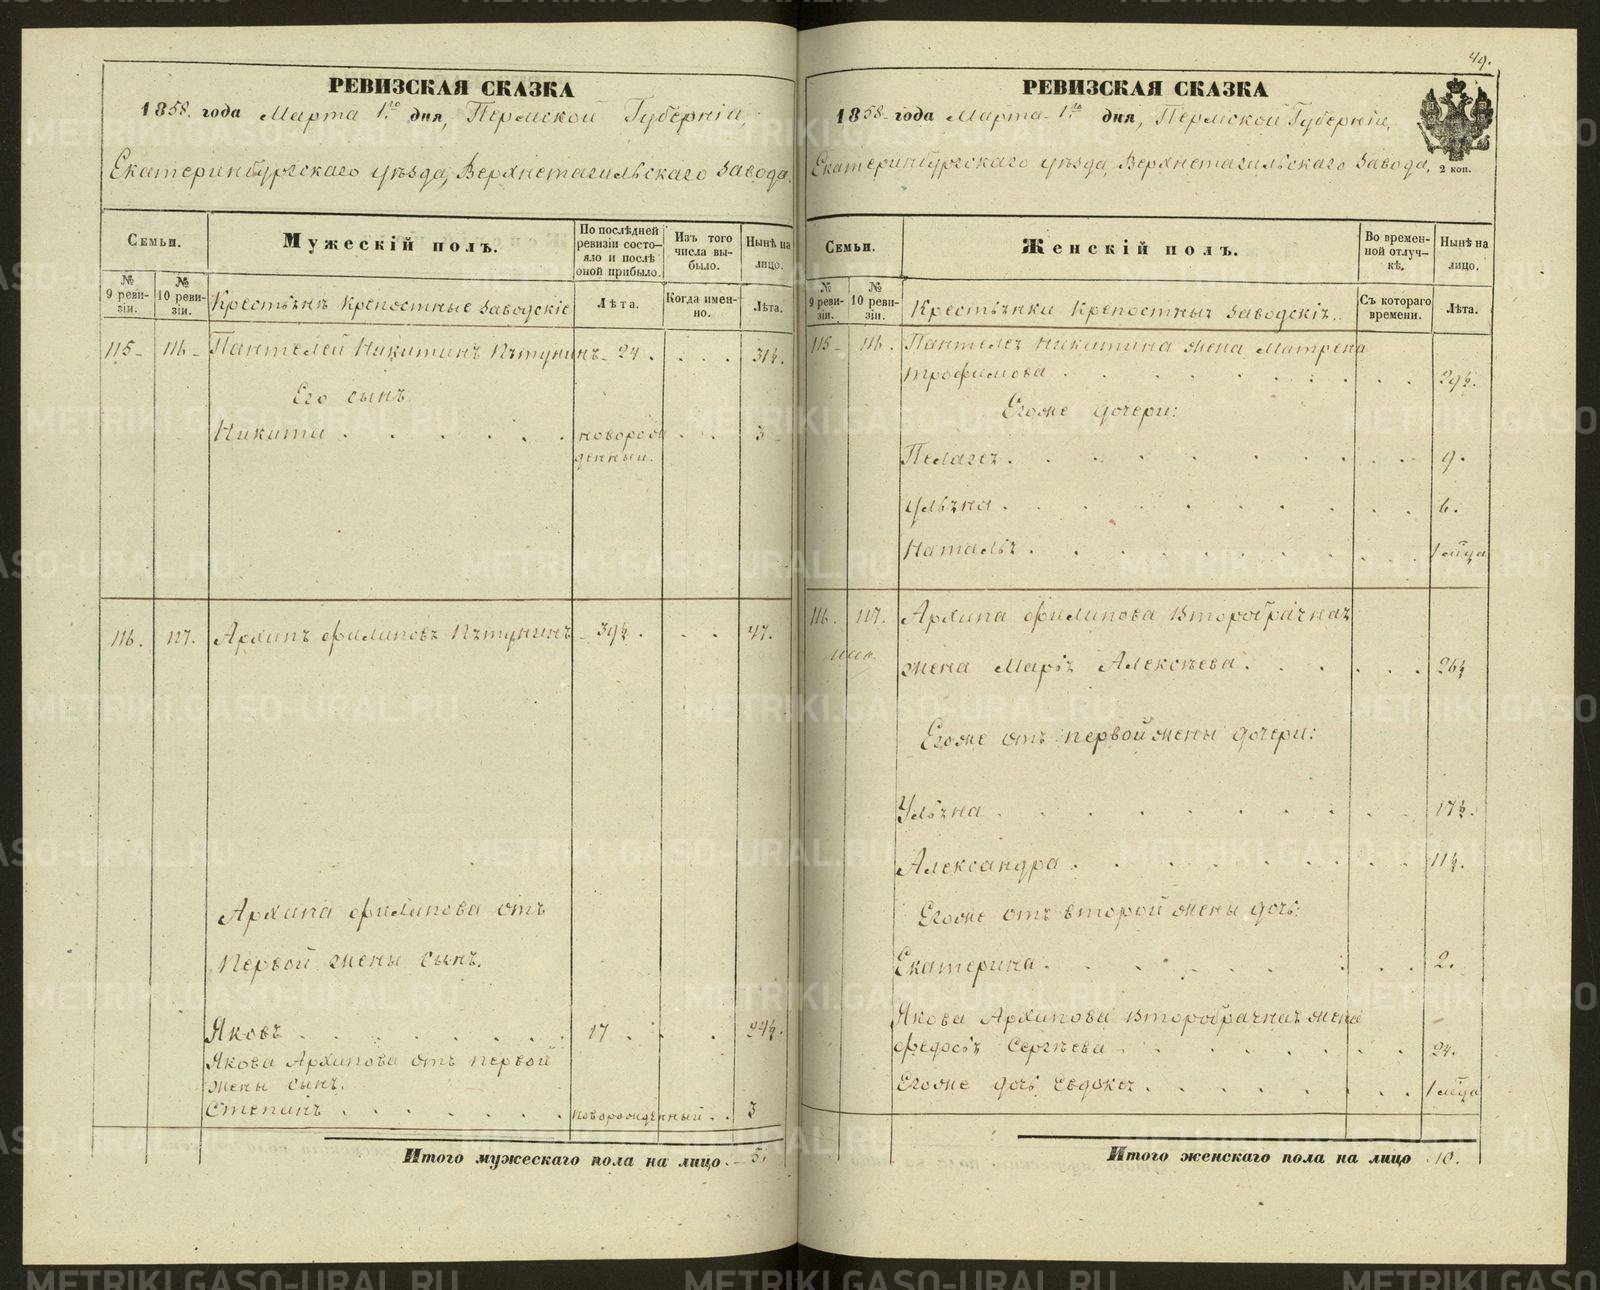 РЕВИЗСКАЯ СКАЗКА
1858. года Марта 1го дня, Пермской Губерніи,
Екатеринбургскаго уѣзда, Верхнетагильскаго завода.
Семьи.
Мужескій полъ.
По послѣдней ревизіи состояло и послѣ оной прибыло.
Изъ того числа выбыло.
Нынѣ на лицо.
№ 9 ревизіи.
№ 10 ревизіи.
Крестьянѣ крепостные заводскіе
Лѣта.
Когда именно.
Лѣта.
115 116 Пантелей Никитинъ Пятунинъ 24. 31½.
Его сынъ
Никита новорожденный. 3
116. 117. Архипъ Филиповъ Пятунинъ 39½. 47.
Архипа Филипова отъ
первой жены сынъ.
Яковъ 17 24½.
Якова Архипова отъ первой
жены сынъ.
Степанъ новорожденный. 3
Итого мужескаго пола на лицо 5.
49.
РЕВИЗСКАЯ СКАЗКА
1858 года Марта 1го дня, Пермской Губерніи,
Екатеринбургскаго уѣзда, Верхнетагильскаго завода.
2 коп.
Семьи.
Женскій полъ.
Во временной отлучкѣ.
Нынѣ на лицо.
№ 9 ревизіи.
№ 10 ревизіи.
Крестьянки крепостныя заводскія.
Съ котораго времени.
Лѣта.
115 116. Пантелея Никитина жена Матрена
Трофимова 29½.
Егоже дочери:
Пелагея 9.
Ульяна 6.
Наталья 1 м-ца
116. 117. Архипа Филипова второбрачная
жена Марья Алексѣева 26½
Егоже отъ первой жены дочери:
Ульяна 17½.
Александра 11½.
Егоже отъ второй жены дочь:
Екатерина 2.
Якова Архипова второбрачная жена
Федосья Сергѣева 24.
Егоже дочь Евдокея 1 м-ца
Итого женскаго пола на лицо 10.
METRIKI.GASO-URAL.RU